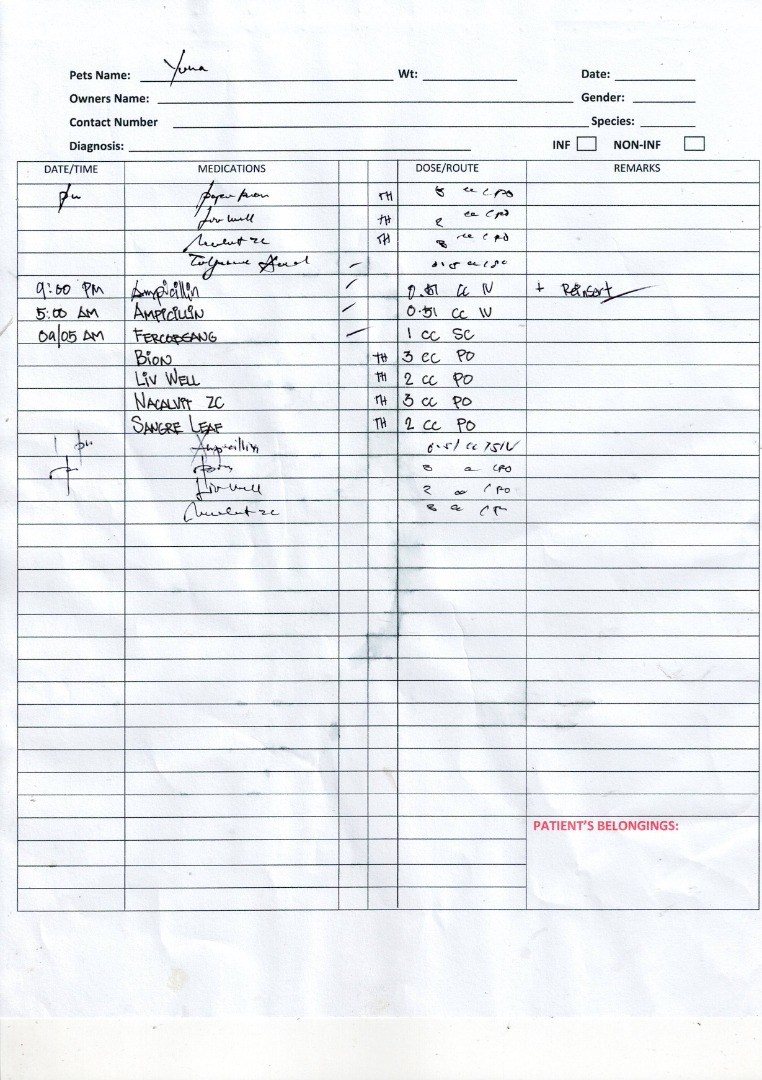 Pets Name: Yuna Wt: Date:
Owners Name: Gender:
Contact Number Species:
Diagnosis: INF NON-INF
DATE/TIME MEDICATIONS DOSE/ROUTE REMARKS
pm TH 3 cc PO
Liv Well TH 2 cc PO
Nacalvit ZC TH 3 cc PO
0.5 cc
9:00 PM Ampicillin 0.51 cc IV + Reinsert
5:00 AM AMPICILLIN 0.51 cc IV
09/05 AM FERCOBSANG 1 cc SC
BION TH 3 cc PO
LIV WELL TH 2 cc PO
NACALVIT ZC TH 3 cc PO
SANGRE LEAF TH 2 cc PO
1 pm Ampicillin 0.51 cc IV
3 cc PO
Liv Well 2 cc PO
Nacalvit ZC 3 cc
PATIENT'S BELONGINGS: